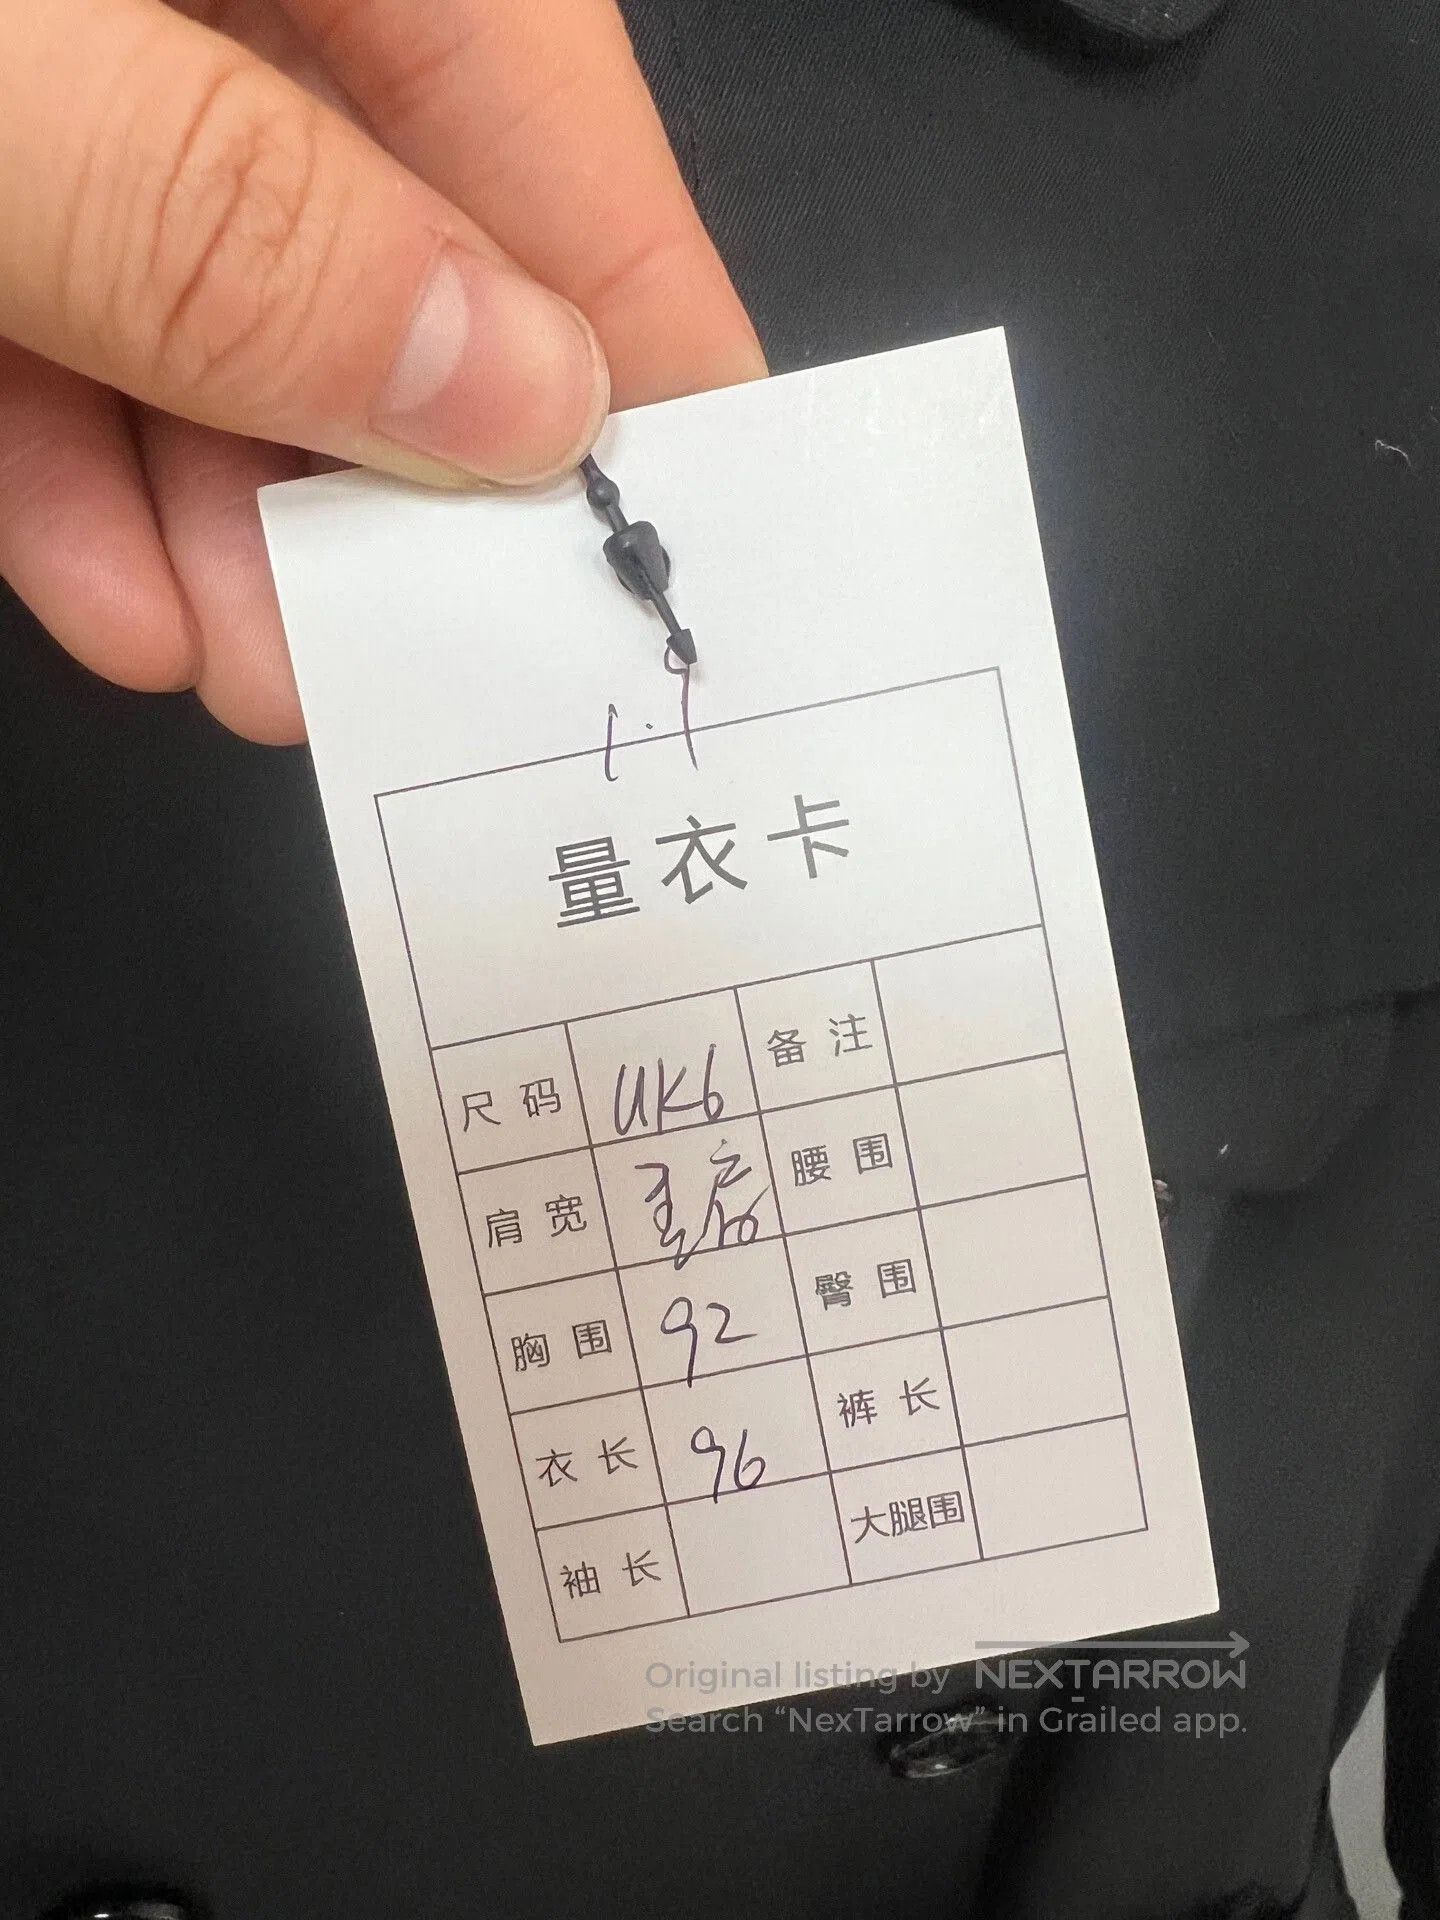 1.9
量衣卡
尺码 UK6 备注
肩宽 腰围
胸围 92 臀围
衣长 96 裤长
袖长 大腿围
Original listing by NEXTARROW
Search “NexTarrow” in Grailed app.